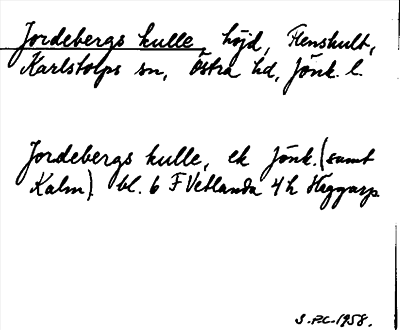 Jordebergs kulle, höjd, Flenshult,
Karlstorps sn, Östra hd, Jönk. l.
Jordebergs kulle, ek Jönk. (samt
Kalm). bl. 6 F Vetlanda 4 h Haggarp
S.P.C. 1958.